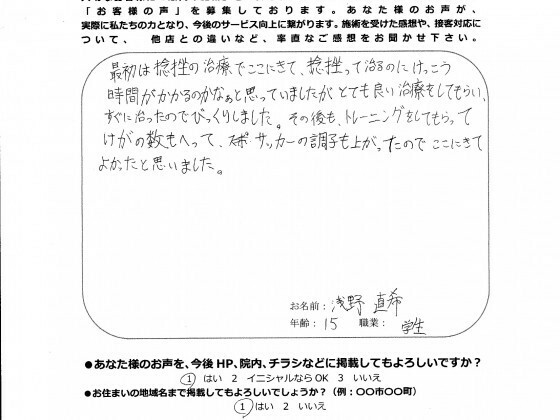 「お客様の声」を募集しております。あなた様のお声が、
実際に私たちの力となり、今後のサービス向上に繋がります。施術を受けた感想や、接客対応に
ついて、 他店との違いなど、率直なご感想をお聞かせ下さい。
最初は捻挫の治療でここにきて、捻挫って治るのにけっこう
時間がかかるのかなぁと思っていましたが、とても良い治療をしてもらい、
すぐに治ったのでびっくりしました。その後も、トレーニングをしてもらって
けがの数もへって、サッカーの調子も上がったのでここにきて
よかったと思いました。
お名前：浅野 直希
年齢：15 職業： 学生
●あなた様のお声を、今後 HP、院内、チラシなどに掲載してもよろしいですか？
① はい 2 イニシャルなら OK 3 いいえ
●お住まいの地域名まで掲載してもよろしいでしょうか？（例：〇〇市〇〇町）
① はい 2 いいえ